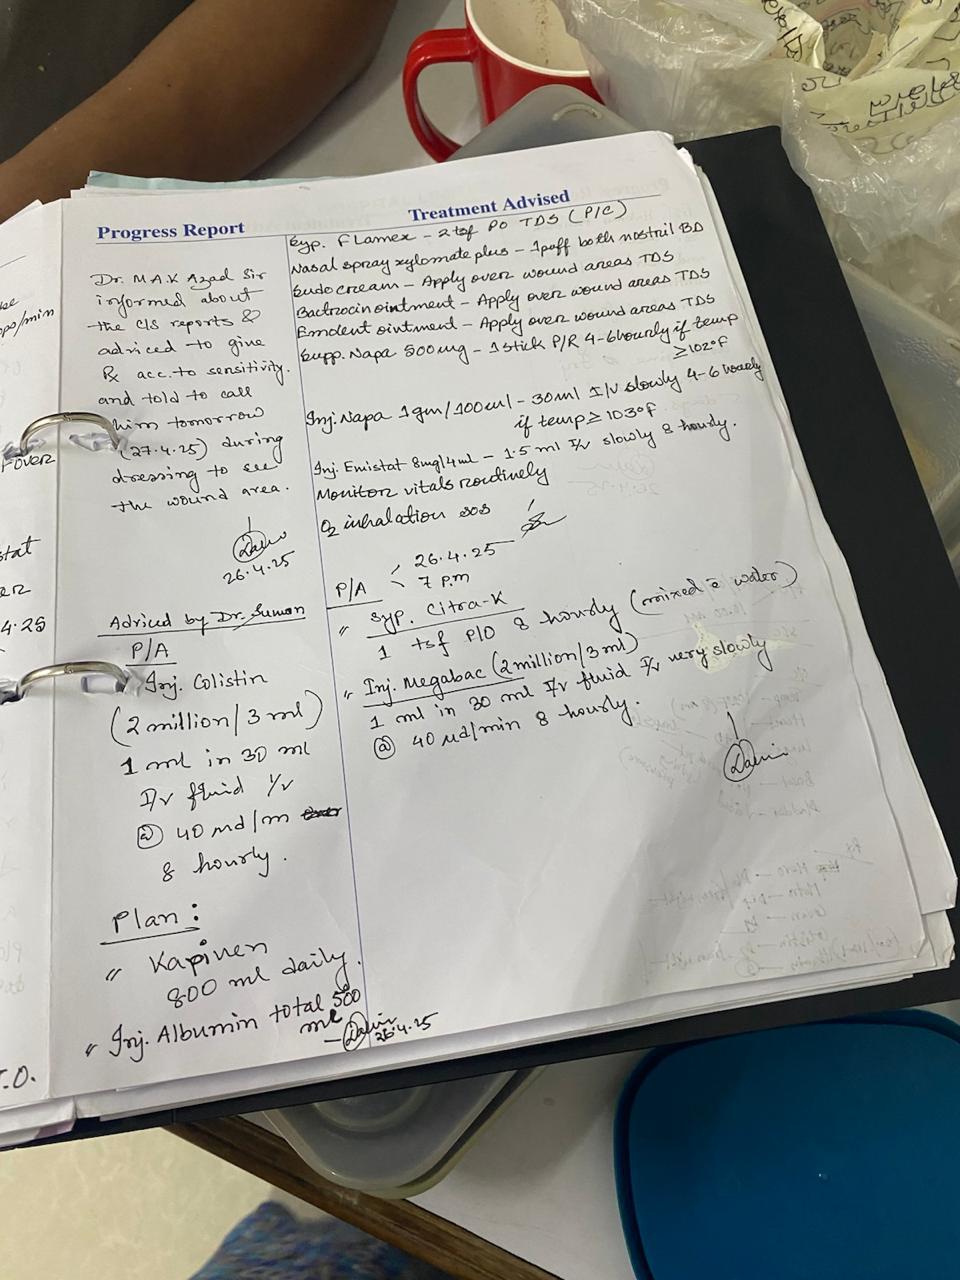 Progress Report
Dr. M.A.K Azad Sir
informed about
the C/S reports &
adviced to give
Rx acc. to sensitivity.
and told to call
him tomorrow
(27.4.25) during
dressing to see
the wound area.
26.4.25
Adviced by Dr. Suman
P/A
Inj. Colistin
(2 million/3 ml)
1 ml in 30 ml
I/v fluid I/v
@ 40 μd/m
8 hourly.
Plan:
" Kapiven
800 ml daily.
" Inj. Albumin total 500
ml
26.4.25
Treatment Advised
Syp. Flamex - 2 tsf PO TDS (P/C)
Nasal spray xylomate plus - 1 paff both nostril BD
Eudo cream - Apply over wound areas TDS
Bactrocin ointment - Apply over wound areas TDS
Emdent ointment - Apply over wound areas TDS
Supp. Napa 500 mg - 1 stick P/R 4-6 hourly if temp
≥102°F
Inj. Napa 1gm/100ml - 30ml I/V slowly 4-6 hourly
if temp ≥ 103°F
Inj. Emistat 8mg/4ml - 1.5 ml I/v slowly 8 hourly.
Monitor vitals routinely
O2 inhalation SOS
P/A
26.4.25
7 p.m
" Syp. Citra-K
1 tsf P/O 8 hourly (mixed c̄ water)
" Inj. Megabac (2 million/3 ml)
1 ml in 30 ml I/v fluid I/v very slowly
@ 40 μd/min 8 hourly.
over
4.25